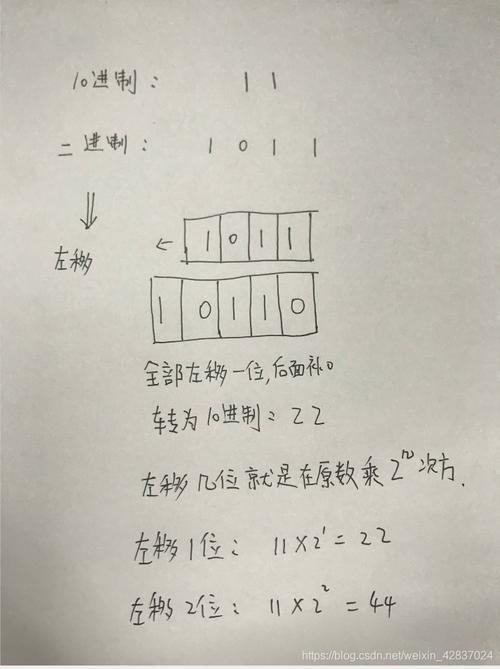 10进制: 11
二进制: 1 0 1 1
⇓
左移
← 1 0 1 1
1 0 1 1 0
全部左移一位,后面补0
转为10进制: 22
左移几位就是在原数乘2ⁿ次方.
左移1位: 11×2¹=22
左移2位: 11×2²=44
https://blog.csdn.net/weixin_42837024